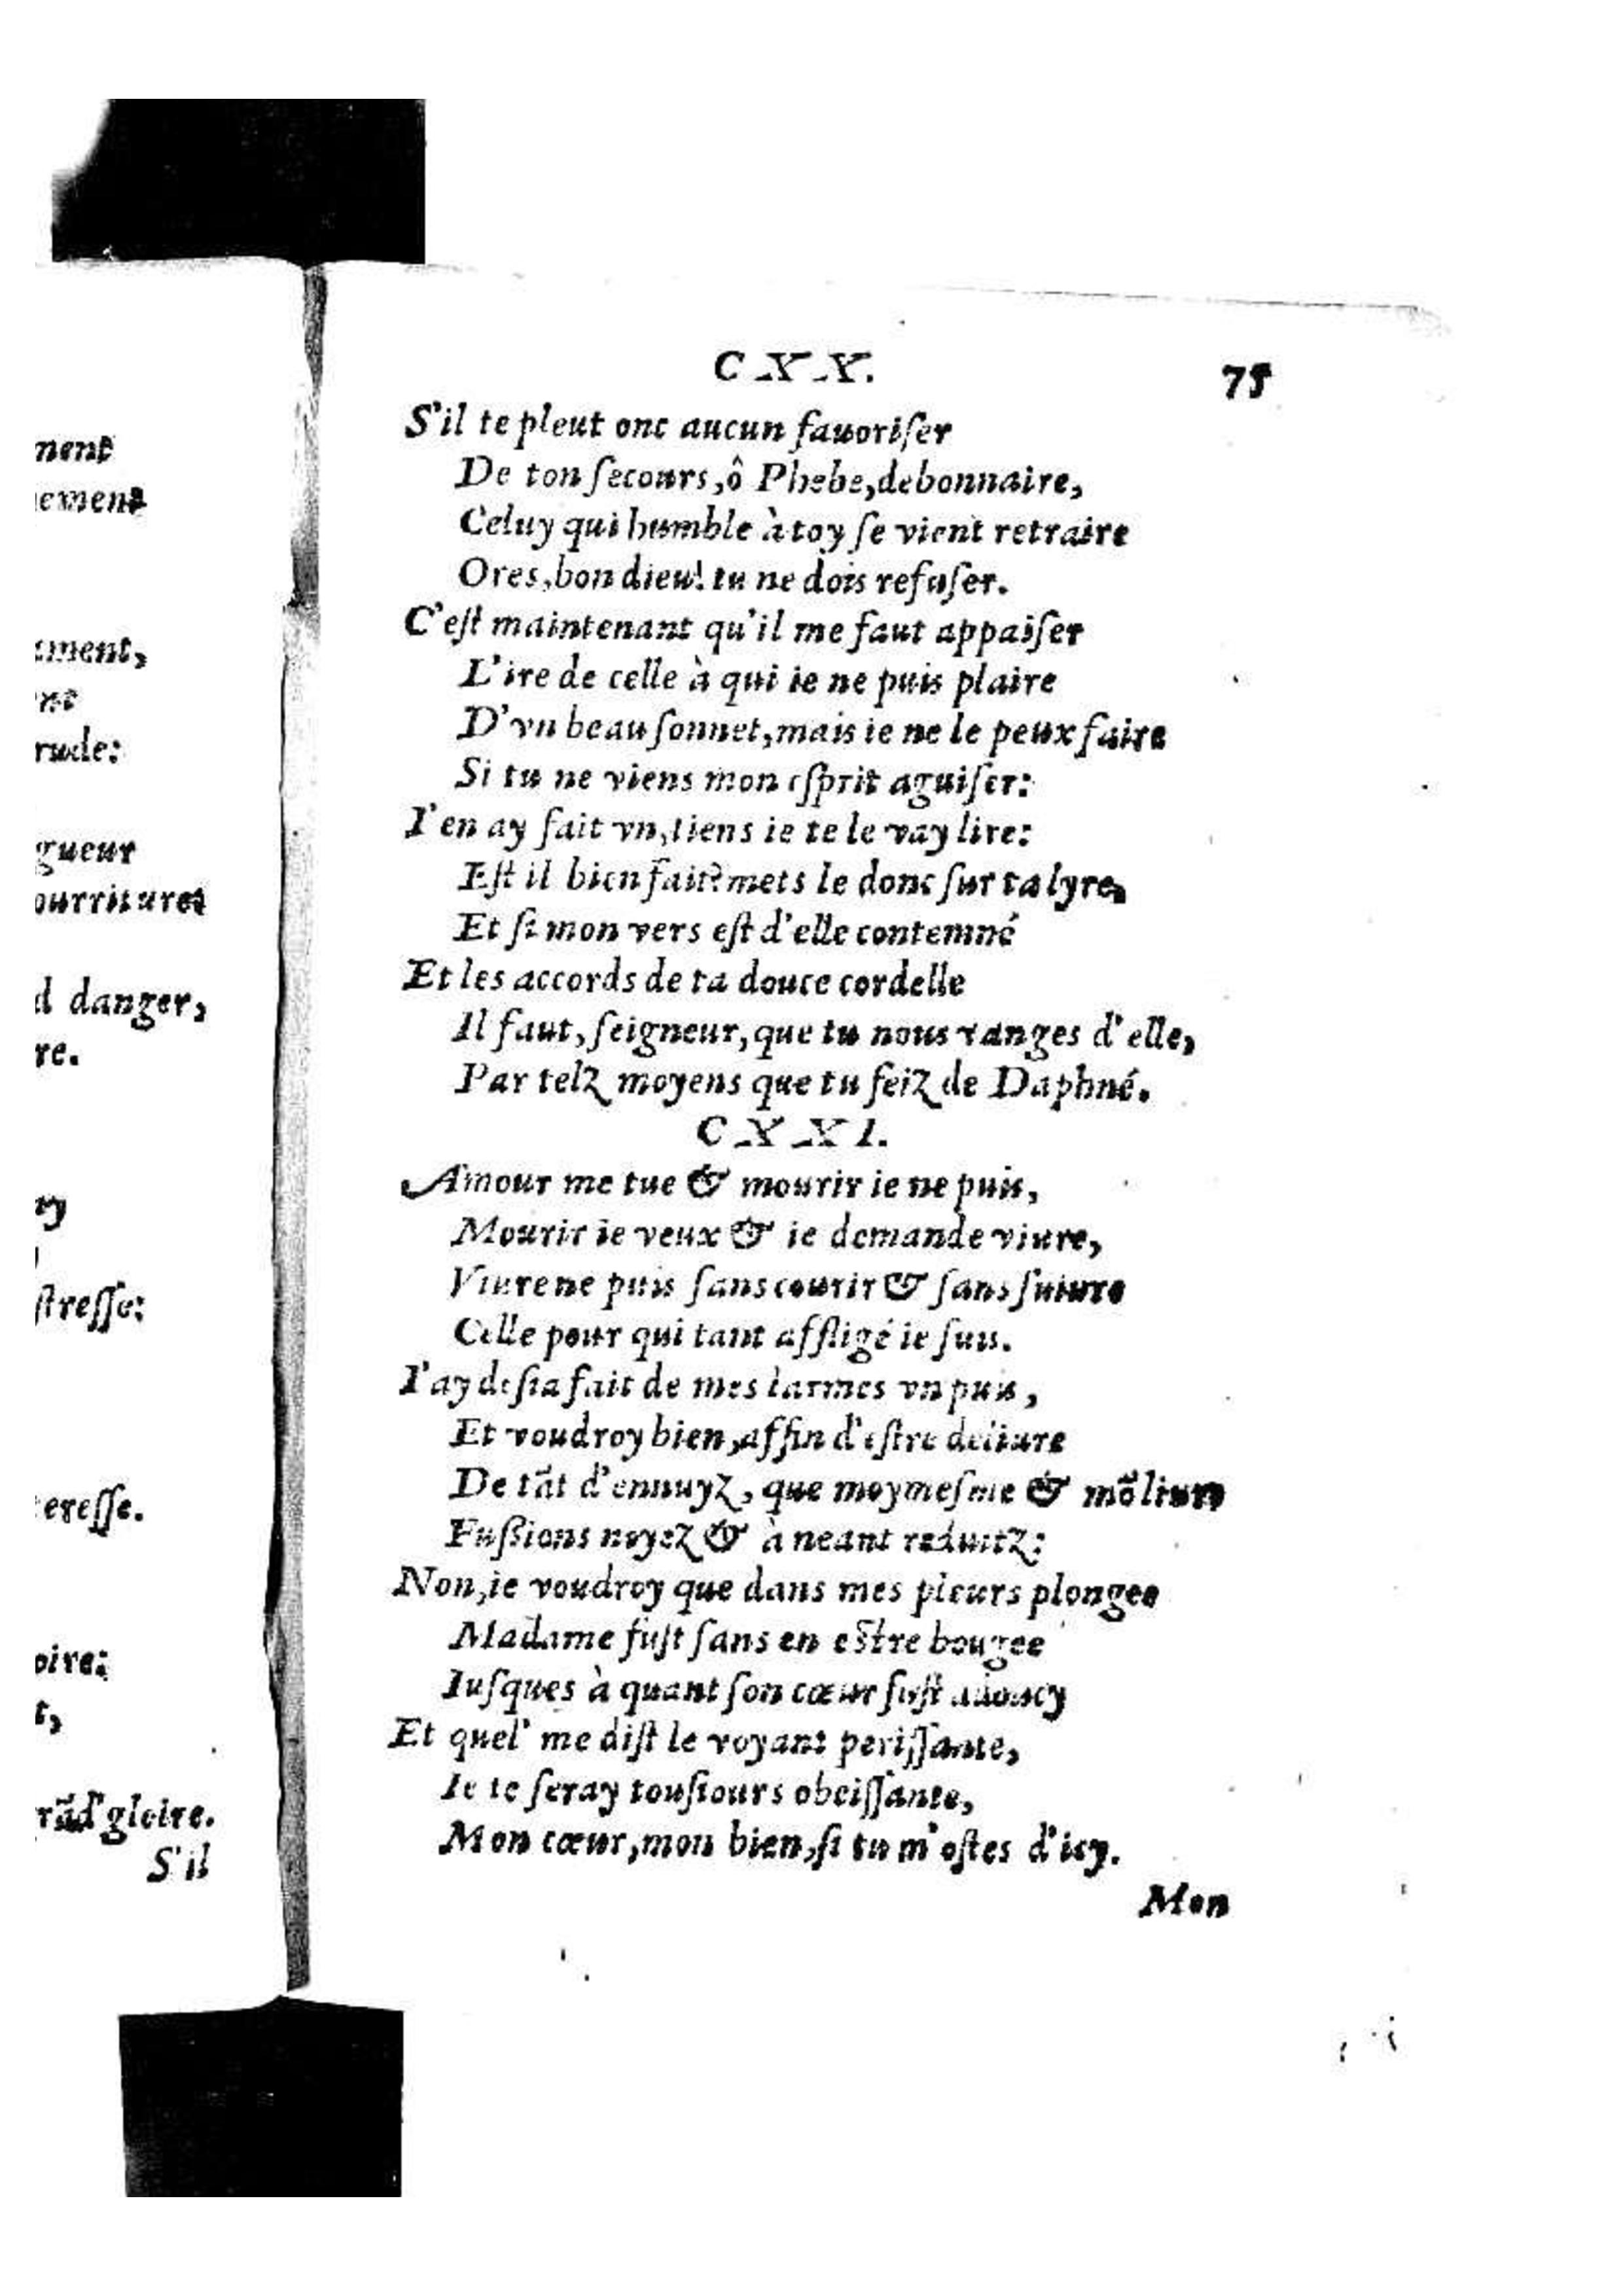 ment
ement
ment,
nt
rude:
gueur
ourritures
d danger,
re.
ry
ſtreſſe:
tereſſe.
oire:
t,
rãd' gloire.
S'il
CXX. 75
S'il te pleut onc aucun fauoriſer
De ton ſecours, ô Phebe, debonnaire,
Celuy qui humble à toy ſe vient retraire
Ores, bon dieu! tu ne dois refuſer.
C'eſt maintenant qu'il me faut appaiſer
L'ire de celle à qui ie ne puis plaire
D'vn beau ſonnet, mais ie ne le peux faire
Si tu ne viens mon eſprit aguiſer:
I'en ay fait vn, tiens ie te le vay lire:
Eſt il bien fait? mets le donc ſur ta lyre,
Et ſi mon vers eſt d'elle contemné
Et les accords de ta douce cordelle
Il faut, ſeigneur, que tu nous ranges d'elle,
Par telz moyens que tu feiz de Daphné.
CXXI.
Amour me tue & mourir ie ne puis,
Mourir ie veux & ie demande viure,
Viure ne puis ſans courir & ſans ſuiure
Celle pour qui tant affligé ie ſuis.
I'ay deſia fait de mes larmes vn puis,
Et voudroy bien, affin d'eſtre deliure
De tãt d'ennuyz, que moymeſme & mõ liure
Fuſsions noyez & à neant reduitz:
Non, ie voudroy que dans mes pleurs plongee
Madame fuſt ſans en eſtre bougee
Iuſques à quant ſon cœur fuſt adoucy
Et quel' me diſt le voyant periſſante,
Ie te ſeray touſiours obeiſſante,
Mon cœur, mon bien, ſi tu m'oſtes d'icy.
Mon